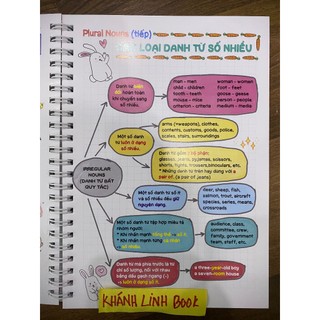 Plural Nouns (tiếp)
LOẠI DANH TỪ SỐ NHIỀU
Danh từ
hoàn toàn
khi chuyển sang
số nhiều.
man - men
child - children
tooth - teeth
mouse - mice
criterion - criteria
woman - women
foot - feet
goose - geese
person - people
medium - media
Một số danh
từ luôn ở dạng
số nhiều.
arms (=weapons), clothes,
contents, customs, goods, police,
scales, stairs, surroundings
IRREGULAR
NOUNS
(DANH TỪ BẤT
QUY TẮC)
Danh từ gồm
glasses, jeans, pyjamas, scissors,
shorts, tights, trousers, binoculars, etc.
* Những danh từ trên hay dùng với a
pair of. (a pair of jeans)
Một số danh từ số ít
và số nhiều đều giữ
nguyên dạng.
deer, sheep, fish,
salmon, trout, aircraft
species, series, means,
crossroads
Một số danh từ tập hợp miêu tả
nhóm người:
* khi nhấn mạnh
* khi nhấn mạnh từng cá nhân
audience, class,
committee, crew,
family, government
team, staff, etc.
Danh từ mà phía trước là từ
chỉ số lượng, nối với nhau
bằng dấu gạch ngang (-)
→ luôn ở dạng số ít.
a three-year-old boy
a seven-room house
KHÁNH LINH BOOK